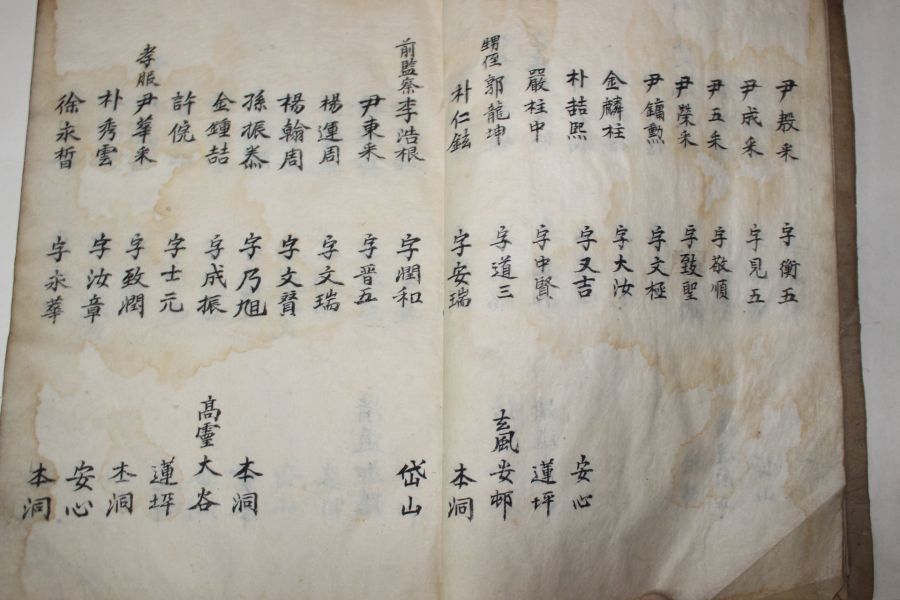 尹毅采 字衡五
尹成采 字見五
尹五采 字敬順
尹榮采 字致聖
尹鏞勲 字文極
金麟柱 字大汝
朴喆熙 字又吉 安心
嚴柱中 字中賢 蓮坪
甥侄郭龍坤 字道三 玄風安邨
朴仁鉉 字安瑞 本洞
前監察李浩根 字潤和 岱山
尹東采 字晋五
楊運周 字文瑞
楊翰周 字文賢
孫振泰 字乃旭 本洞
金鍾喆 字成振 高靈大谷
許俒 字士元 蓮坪
孝服尹華采 字致潤 本洞
朴秀雲 字汝章 安心
徐永晳 字永華 本洞